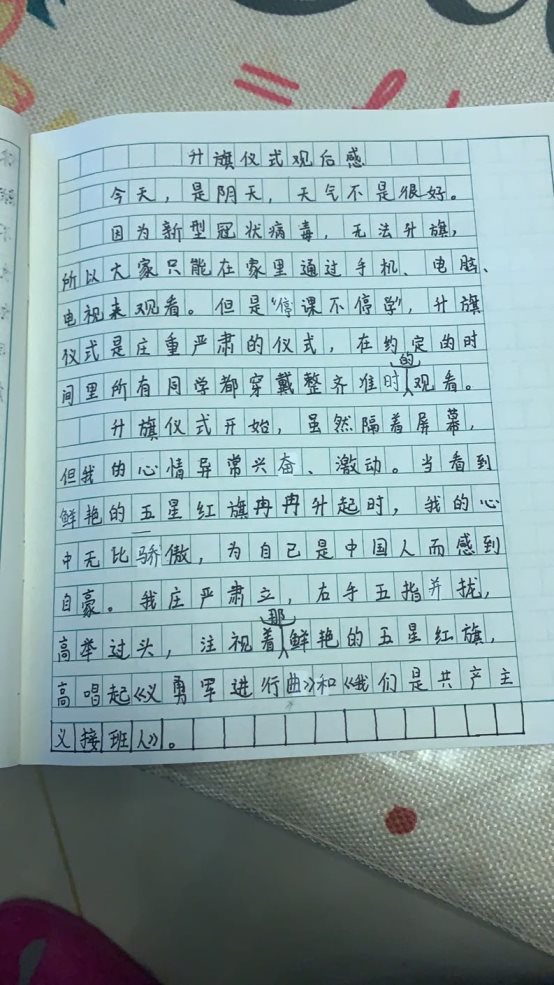 升旗仪式观后感
今天，是阴天，天气不是很好。
因为新型冠状病毒，无法升旗，
所以大家只能在家里通过手机、电脑、
电视来观看。但是“停课不停学”，升旗
仪式是庄重严肃的仪式，在约定的时
间里所有同学都穿戴整齐准时的观看。
升旗仪式开始，虽然隔着屏幕，
但我的心情异常兴奋、激动。当看到
鲜艳的五星红旗冉冉升起时，我的心
中无比骄傲，为自己是中国人而感到
自豪。我庄严肃立，右手五指并拢，
高举过头，注视着那鲜艳的五星红旗，
高唱起《义勇军进行曲》和《我们是共产主
义接班人》。